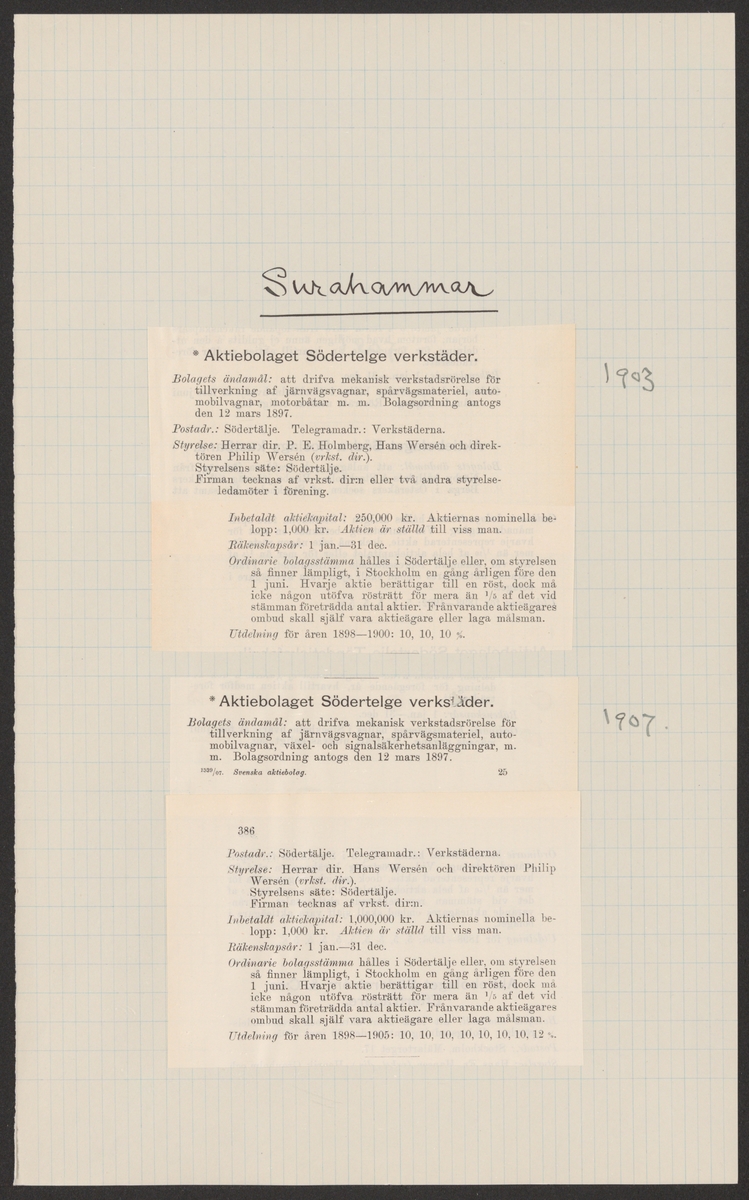 Surahammar
* Aktiebolaget Södertelge verkstäder.
1903
Bolagets ändamål: att drifva mekanisk verkstadsrörelse för
tillverkning af järnvägsvagnar, spårvägsmateriel, auto-
mobilvagnar, motorbåtar m. m. Bolagsordning antogs
den 12 mars 1897.
Postadr.: Södertälje. Telegramadr.: Verkstäderna.
Styrelse: Herrar dir. P. E. Holmberg, Hans Wersén och direk-
tören Philip Wersén (vrkst. dir.).
Styrelsens säte: Södertälje.
Firman tecknas af vrkst. dir:n eller två andra styrelse-
ledamöter i förening.
Inbetaldt aktiekapital: 250,000 kr. Aktiernas nominella be-
lopp: 1,000 kr. Aktien är ställd till viss man.
Räkenskapsår: 1 jan.—31 dec.
Ordinarie bolagsstämma hålles i Södertälje eller, om styrelsen
så finner lämpligt, i Stockholm en gång årligen före den
1 juni. Hvarje aktie berättigar till en röst, dock må
icke någon utöfva rösträtt för mera än 1/5 af det vid
stämman företrädda antal aktier. Frånvarande aktieägares
ombud skall själf vara aktieägare eller laga målsman.
Utdelning för åren 1898—1900: 10, 10, 10 %.
* Aktiebolaget Södertelge verkstäder.
1907.
Bolagets ändamål: att drifva mekanisk verkstadsrörelse för
tillverkning af järnvägsvagnar, spårvägsmateriel, auto-
mobilvagnar, växel- och signalsäkerhetsanläggningar, m.
m. Bolagsordning antogs den 12 mars 1897.
1339/07. Svenska aktiebolag. 25
386
Postadr.: Södertälje. Telegramadr.: Verkstäderna.
Styrelse: Herrar dir. Hans Wersén och direktören Philip
Wersén (vrkst. dir.).
Styrelsens säte: Södertälje.
Firman tecknas af vrkst. dir:n.
Inbetaldt aktiekapital: 1,000,000 kr. Aktiernas nominella be-
lopp: 1,000 kr. Aktien är ställd till viss man.
Räkenskapsår: 1 jan.—31 dec.
Ordinarie bolagsstämma hålles i Södertälje eller, om styrelsen
så finner lämpligt, i Stockholm en gång årligen före den
1 juni. Hvarje aktie berättigar till en röst, dock må
icke någon utöfva rösträtt för mera än 1/5 af det vid
stämman företrädda antal aktier. Frånvarande aktieägares
ombud skall själf vara aktieägare eller laga målsman.
Utdelning för åren 1898—1905: 10, 10, 10, 10, 10, 10, 10, 12 %.